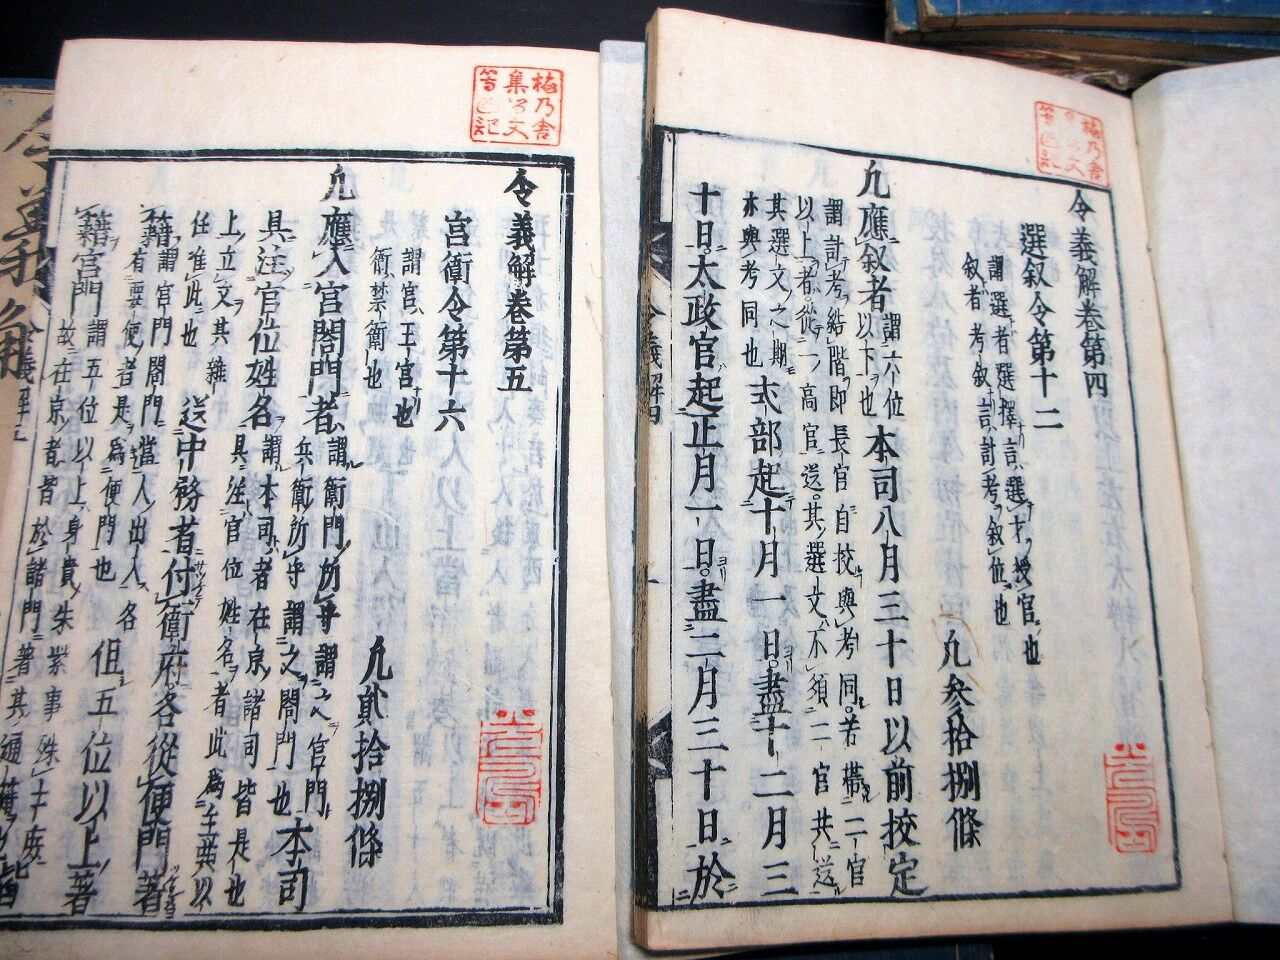 令義解巻第四
選叙令第十二
謂選者選擇言選才授官也
叙者考叙言計考叙位也
凢叄拾捌條
凢應叙者謂六位以下也本司八月三十日以前挍定
謂計考結階即長官自挍與考同若帶二官
以上者從一高官送其選文不須二官共送
其選文之期亦與考同也
式部起十月一日盡十二月三
十日太政官起正月一日盡二月三十日於
令義解四
令義解巻第五
宮衛令第十六
謂宮王宮也
衛禁衛也
凢貳拾捌條
凢應入宮閤門者謂衛門所守謂之宮門
兵衛所守謂之閤門也
本司
具注官位姓名謂本司者在京諸司皆是也
具注官位姓名者此爲主典以
上立文其雜
任准此也
送中務省付衛府各從便門著
籍謂宮門閤門當人出入各
有要便者是爲便門也
但五位以上著
籍宮門謂五位以上身貴朱紫事殊
故在京者皆於諸門著其
梅乃舎